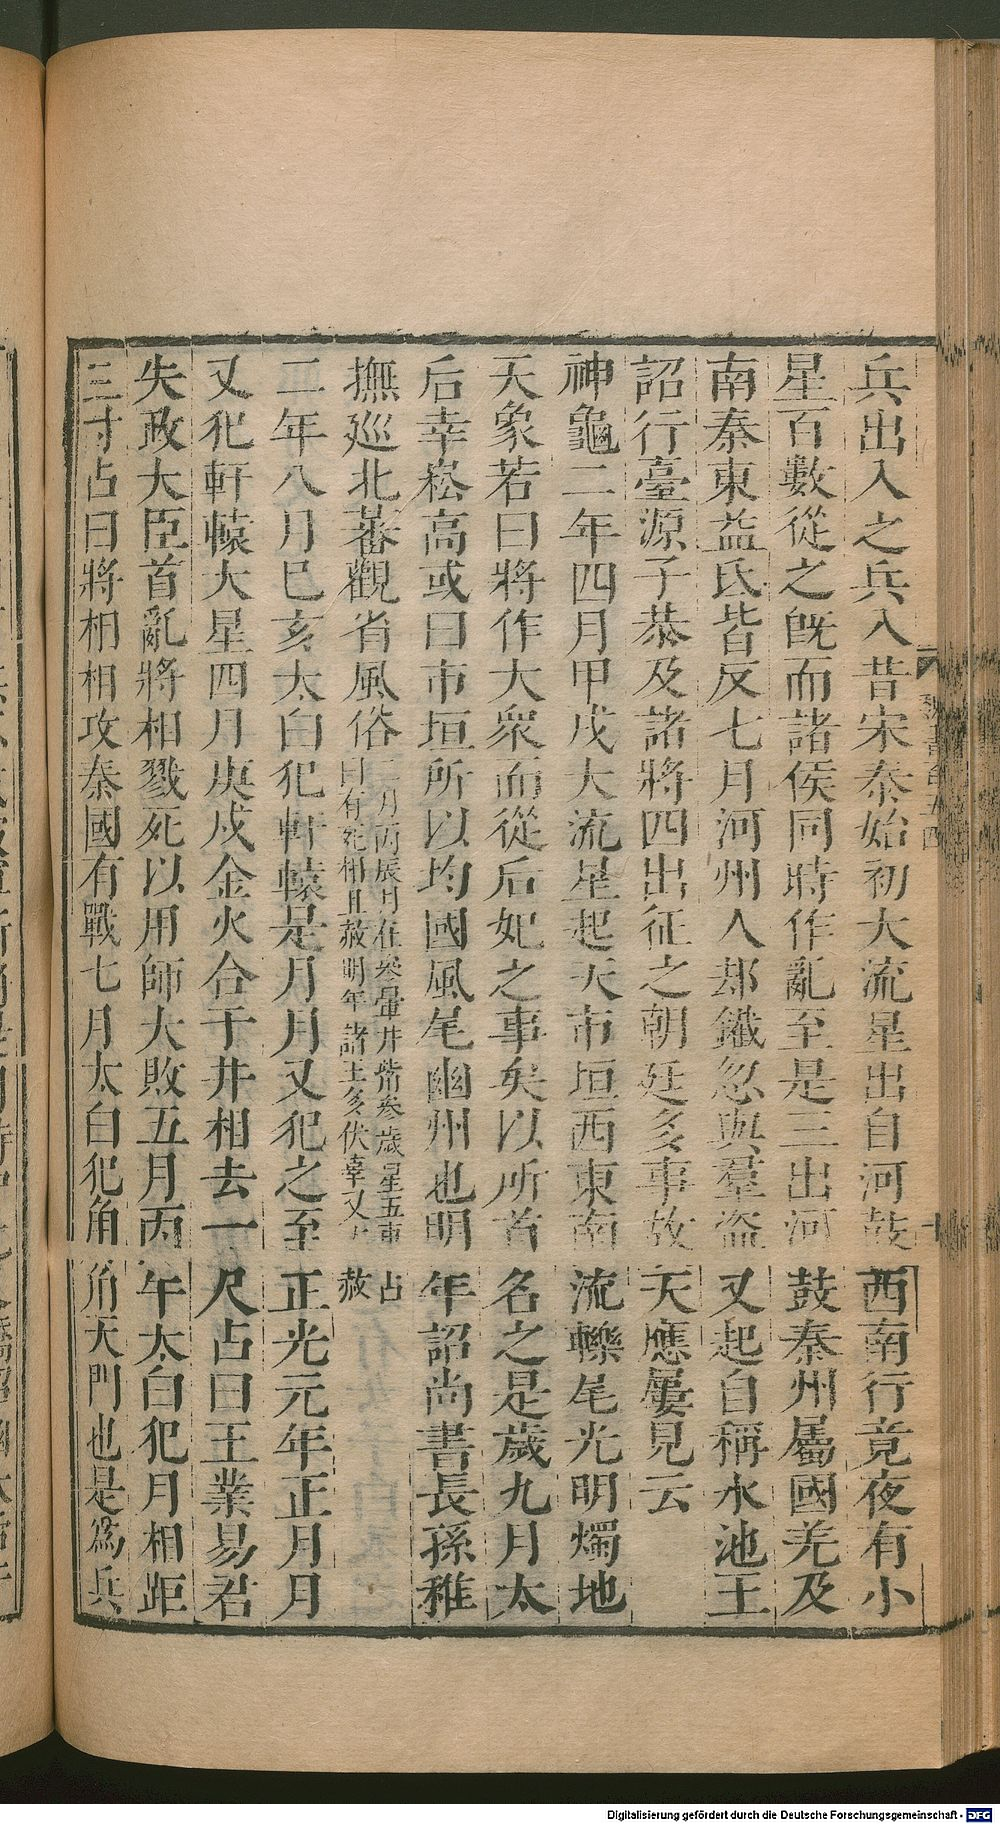 兵出入之兵入昔宋泰始初大流星出自河鼓西南行竟夜有小
星百數從之旣而諸侯同時作亂至是三出河鼓秦州屬國羌及
南秦東益氐皆反七月河州人却鐵忽與羣盜又起自稱水池王
詔行臺源子恭及諸將四出征之朝廷多事故天應屢見云
神龜二年四月甲戌大流星起天市垣西東南流轢尾光明燭地
天象若曰將作大衆而從后妃之事矣以所首名之是歲九月太
后幸崧高或曰市垣所以均國風尾幽州也明年詔尚書長孫稚
撫巡北蕃觀省風俗
二月丙辰月在參暈井觜參歲星五車占
曰有死相且赦明年諸王多伏辜又 赦
二年八月巳亥太白犯軒轅是月月又犯之至正光元年正月月
又犯軒轅大星四月庚戌金火合于井相去一尺占曰王業易君
失政大臣首亂將相戮死以用師大敗五月丙午太白犯月相距
三寸占曰將相相攻秦國有戰七月太白犯角角天門也是爲兵
魏書百五四
十
Digitalisierung gefördert durch die Deutsche Forschungsgemeinschaft - DFG